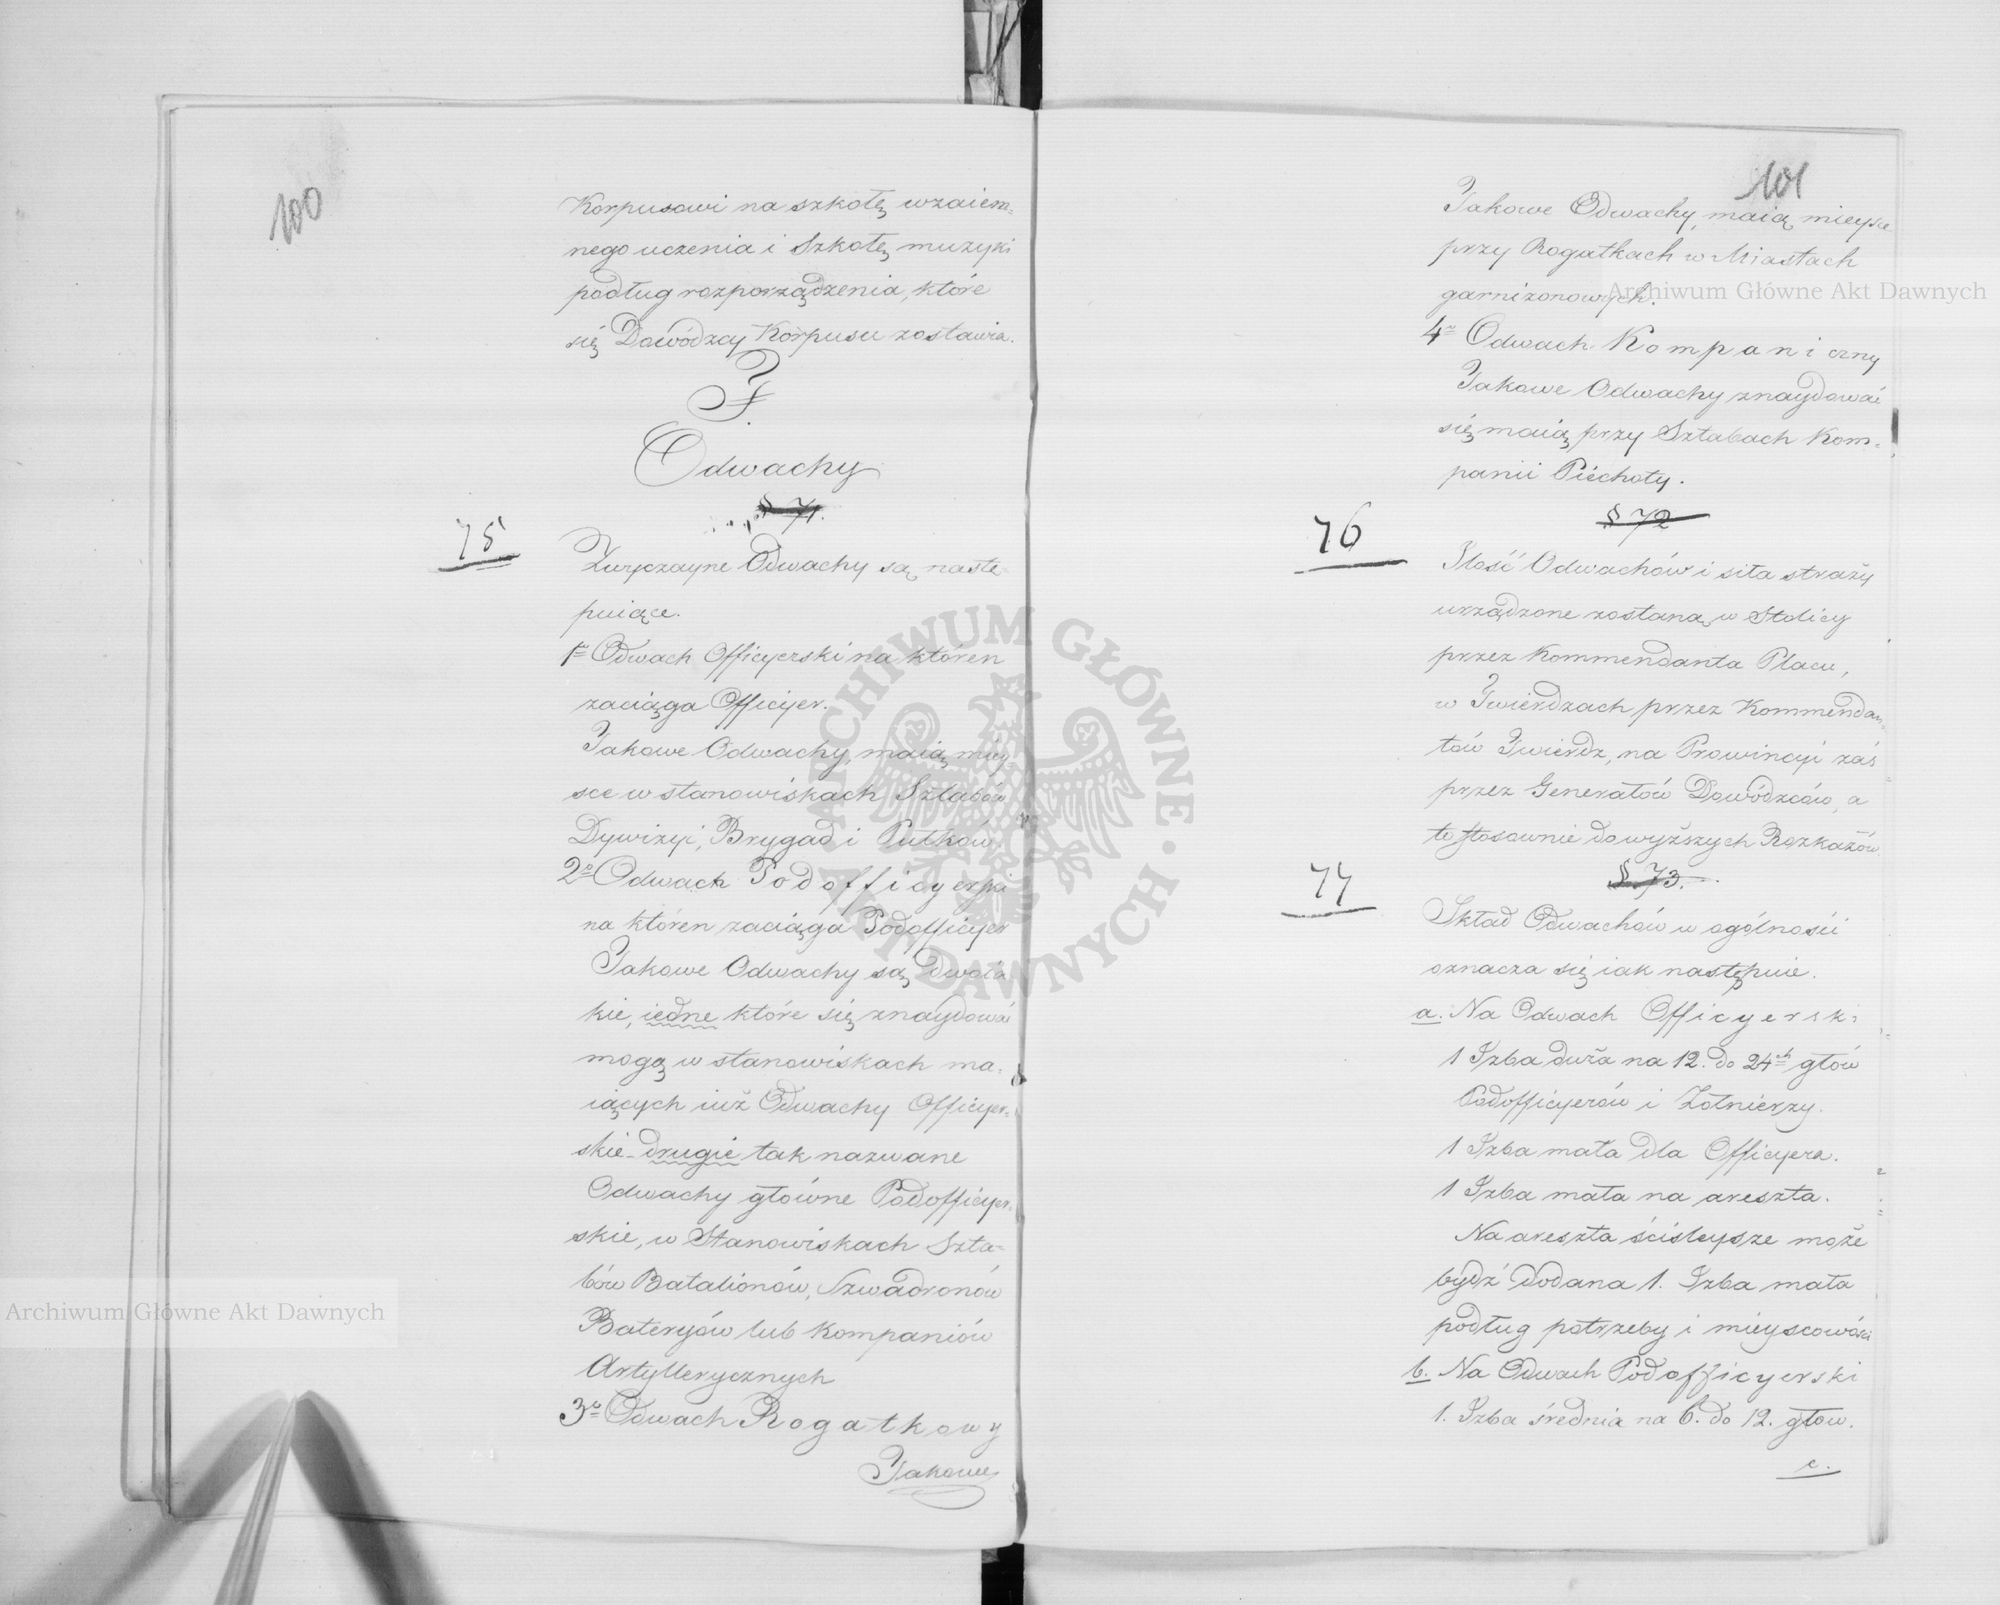 100
Korpusowi na szkołę wzaiem=
nego uczenia i Szkołę muzyki
podług rozporządzenia, które
się Dowódzcy Korpusu zostawia.
F.
Odwachy
§ 71.
75
Zwyczayne Odwachy są nastę
puiące.
1o Odwach Officyerski na któren
zaciąga Officyer.
Takowe Odwachy, maią miey=
sce w stanowiskach Sztabów
Dywizyi, Brygad i Pułków.
2o Odwach Podofficyerski
na któren zaciąga Podofficyer
Takowe Odwachy są dwoia
kie, iedne które się znaydować
mogą w stanowiskach ma=
iących iuż Odwachy Officyer=
skie - drugie tak nazwane
Odwachy główne Podofficyer=
skie, w Stanowiskach Szta=
bów Batalionów, Szwadronów
Bateryów lub Kompaniów
Artyllerycznych
3o Odwach Rogatkowy
Takowe
101
Takowe Odwachy, maią mieysce
przy Rogatkach w Miastach
garnizonowych.
4o Odwach Kompaniczny
Takowe Odwachy znaydować
się maią przy Sztabach Kom=
panii Piéchoty.
§ 72
76
Ilość Odwachów i siła straży
urządzone zostaną w Stolicy
przez Kommendanta Placu,
w Twierdzach przez Kommendan=
tów Twierdz, na Prowincyi zaś
przez Generałów Dowódzców, a
to stosownie do wyższych Rozkazów.
§ 73.
77
Skład Odwachów w ogólności
oznacza się iak następuie.
a. Na Odwach Officyerski
1 Izba duża na 12. do 24ch głów
Podofficyerów i Żołnierzy.
1 Izba mała dla Officyera.
1 Izba mała na areszta.
Na areszta ściśleysze może
bydź dodana 1. Izba mała
podług potrzeby i mieyscowości
b. Na Odwach Podofficyerski
1. Izba średnia na 6. do 12. głow.
c.
Archiwum Główne Akt Dawnych
Archiwum Główne Akt Dawnych
ARCHIWUM GŁÓWNE AKT DAWNYCH